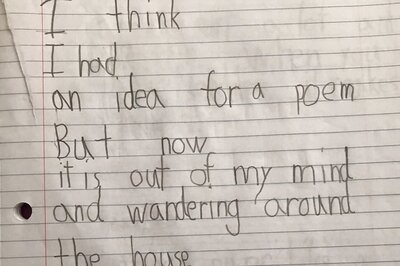 I think
I had
an idea for a poem
But now
it is out of my mind
and wandering around
the house